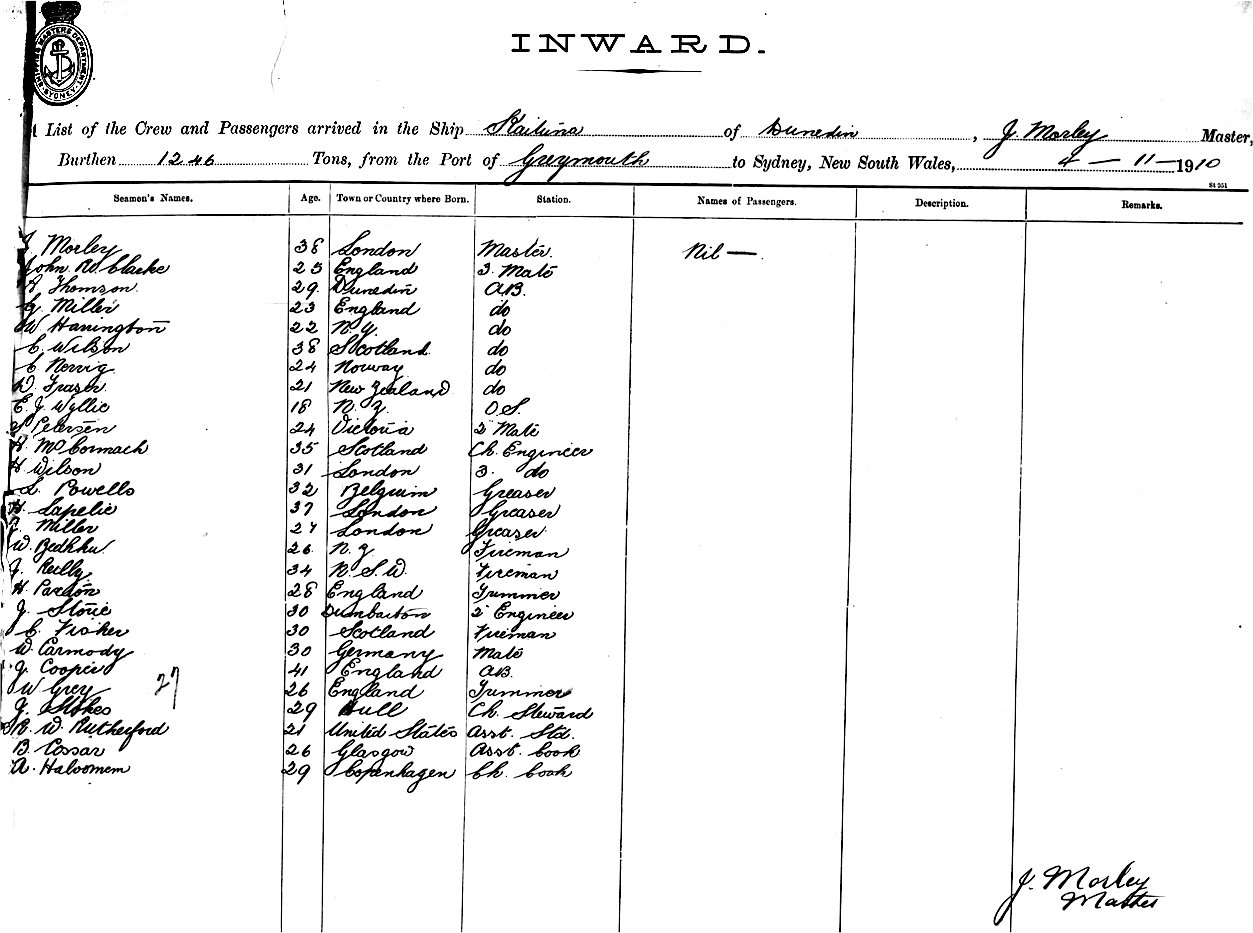 SHIPPING MASTERS DEPARTMENT SYDNEY
INWARD.
List of the Crew and Passengers arrived in the Ship Kaituna of Dunedin, J. Morley Master,
Burthen 1246 Tons, from the Port of Greymouth to Sydney, New South Wales, 4 – 11 – 1910
St 251
Seamen's Names. Age. Town or Country where Born. Station. Names of Passengers. Description. Remarks.
J. Morley 38 London Master. Nil —
John W. Clarke 25 England 3. Mate
A. Thomson. 29. Dunedin A.B.
G. Miller 23 England do
W Harrington 22 N.Z. do
C. Wilson 38 Scotland. do
C Nervig 24 Norway do
D. Fraser. 21 New Zealand do
E. J. Wyllie 18 N. Z. O.S.
S Petersen 24 Victoria 2 Mate
H. McCormack 35 Scotland Ch. Engineer
H Wilson 31 London 3. do
L. Powells 32 Belguim Greaser
H. Lapelie 37 London Greaser
J. Miller 27 London Greaser
W. 26 N. Z Fireman
J. Reilly 34 N. S. W. Fireman
H. Pardon 28 England Trimmer
J. Stone 30 Dumbarton 2 Engineer
C. Fisher 30 Scotland Fireman
W. Carmody 30 Germany Mate
J. Cooper 41 England A.B.
W Grey 27 26 England Trimmer
J. Stokes 29 Hull Ch. Steward
R. W. Rutherford 21 United States Asst. Std.
B. Cossar 26 Glasgow Asst. Cook
A. Halvomem 29 Copenhagen Ch. Cook
J. Morley
Master